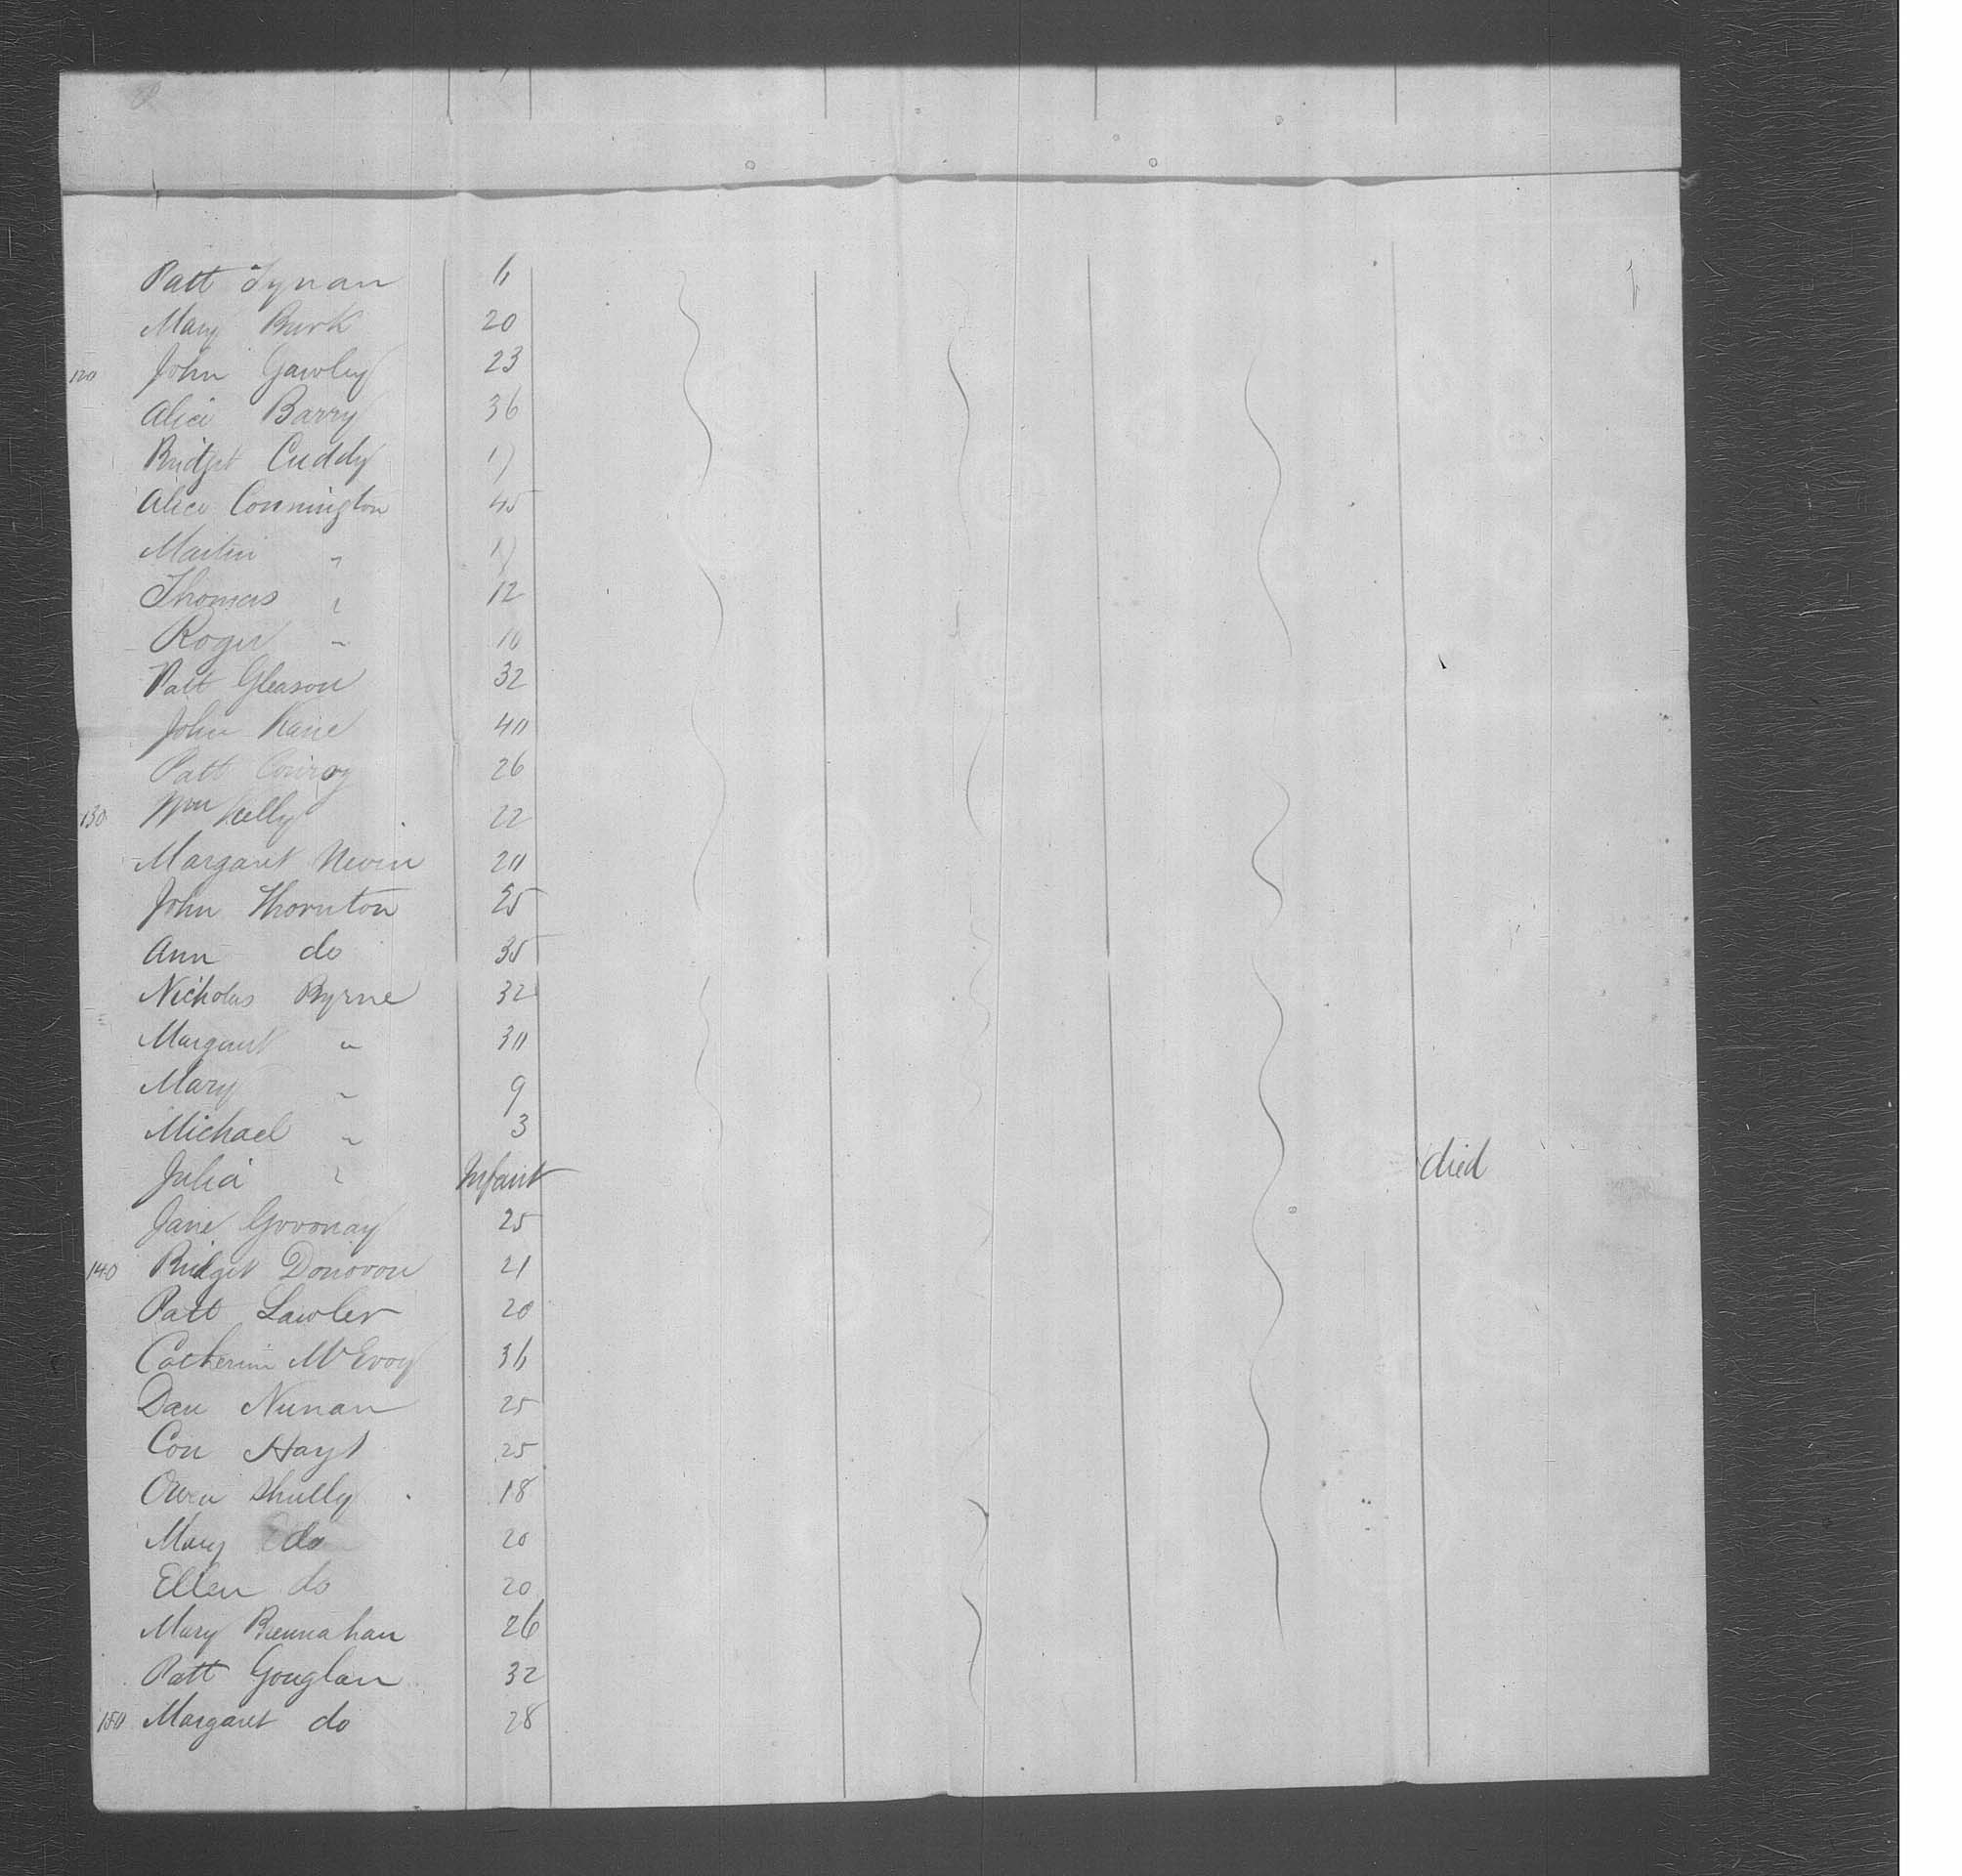 Patt Tynan 6
Mary Burk 20
120 John Gawley 23
Alice Barry 36
Bridget Cuddy 17
Alice Connington 45
Martin " 17
Thomas " 12
Roger " 10
Patt Gleason 32
John Kane 40
Patt Conroy 26
130 Wm Kelly 22
Margaret Nevin 20
John Thornton 25
Ann do 35
Nicholas Byrne 32
Margaret " 30
Mary " 9
Michael " 3
Julia " Infant died
Jane 25
140 Bridget Donovon 21
Patt Lawler 20
Catherine McEvoy 36
Dan Nunan 25
Con Hayt 25
Owen Shully 18
Mary do 20
Ellen do 20
Mary Brennahan 26
Patt Gouglan 32
150 Margaret do 28